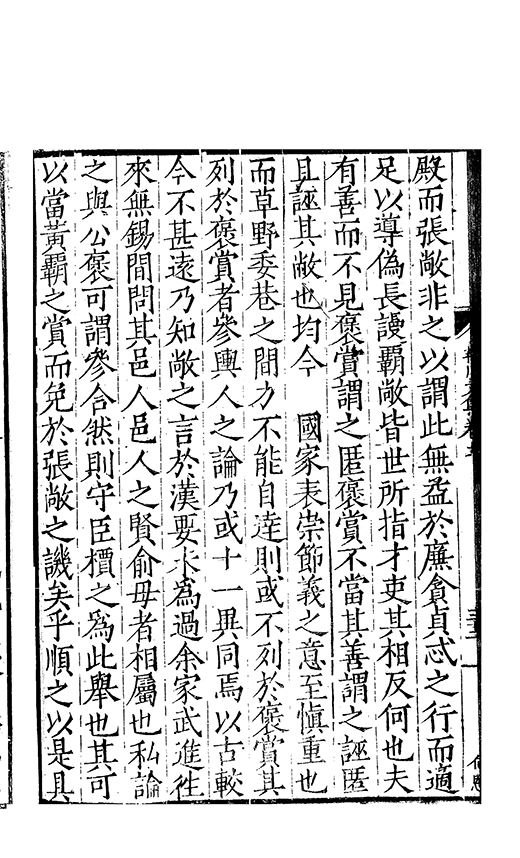 殿而張敞非之以謂此無益於廉貪貞忒之行而適
足以導偽長謾霸敞皆世所指才吏其相反何也夫
有善而不見褒賞謂之匿褒賞不當其善謂之誣匿
且誣其敝也均今 國家表崇節義之意至慎重也
而草野委巷之間力不能自達則或不列於褒賞其
列於褒賞者參輿人之論乃或十一異同焉以古較
今不甚遠乃知敞之言於漢要未為過余家武進往
來無錫間問其邑人邑人之賢俞母者相屬也私論
之與公褒可謂參合然則守臣檟之為此舉也其可
以當黃霸之賞而免於張敞之譏矣乎順之以是具